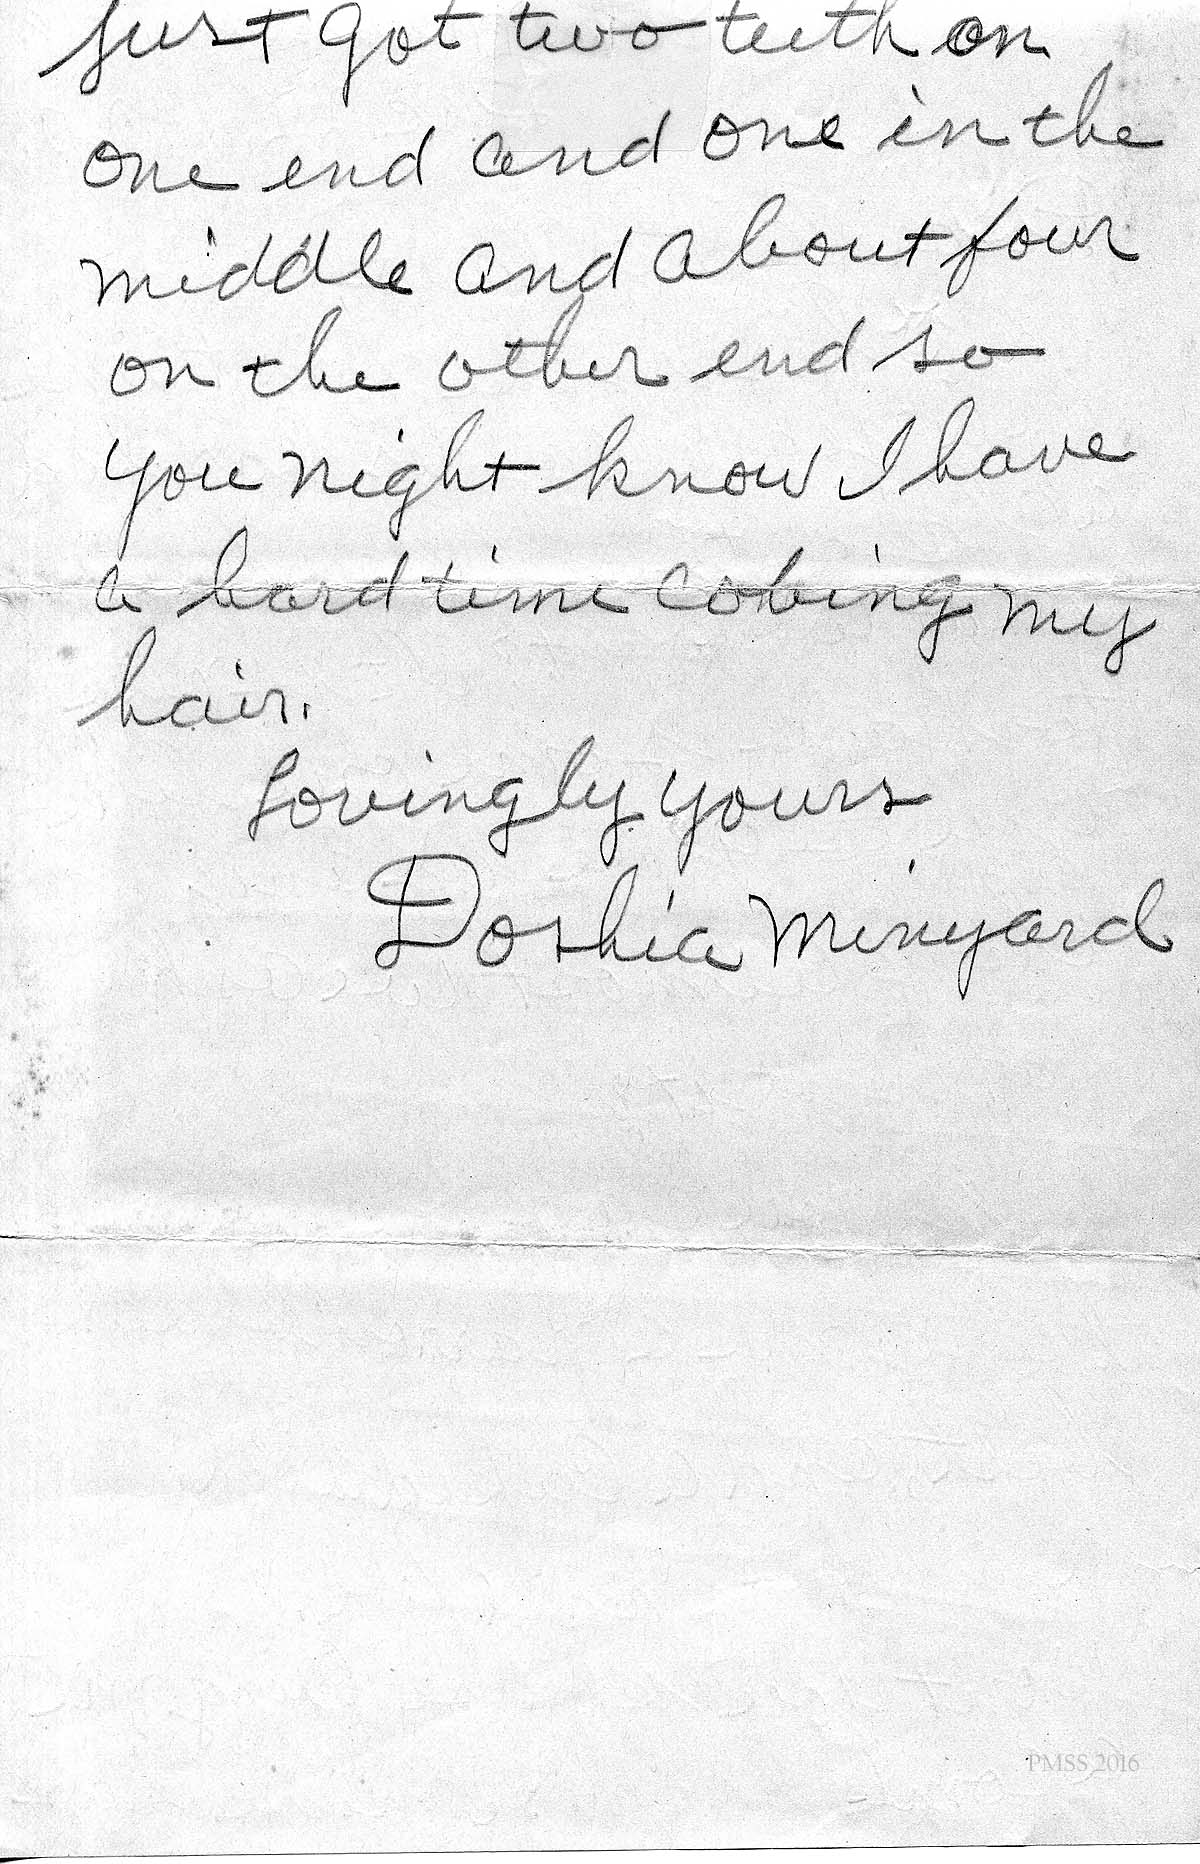 just got two teeth on
one end and one in the
middle and about four
on the other end so
you night know I have
a hard time cobing my
hair.
Lovingly yours
Doshia Minyard
PMSS 2016